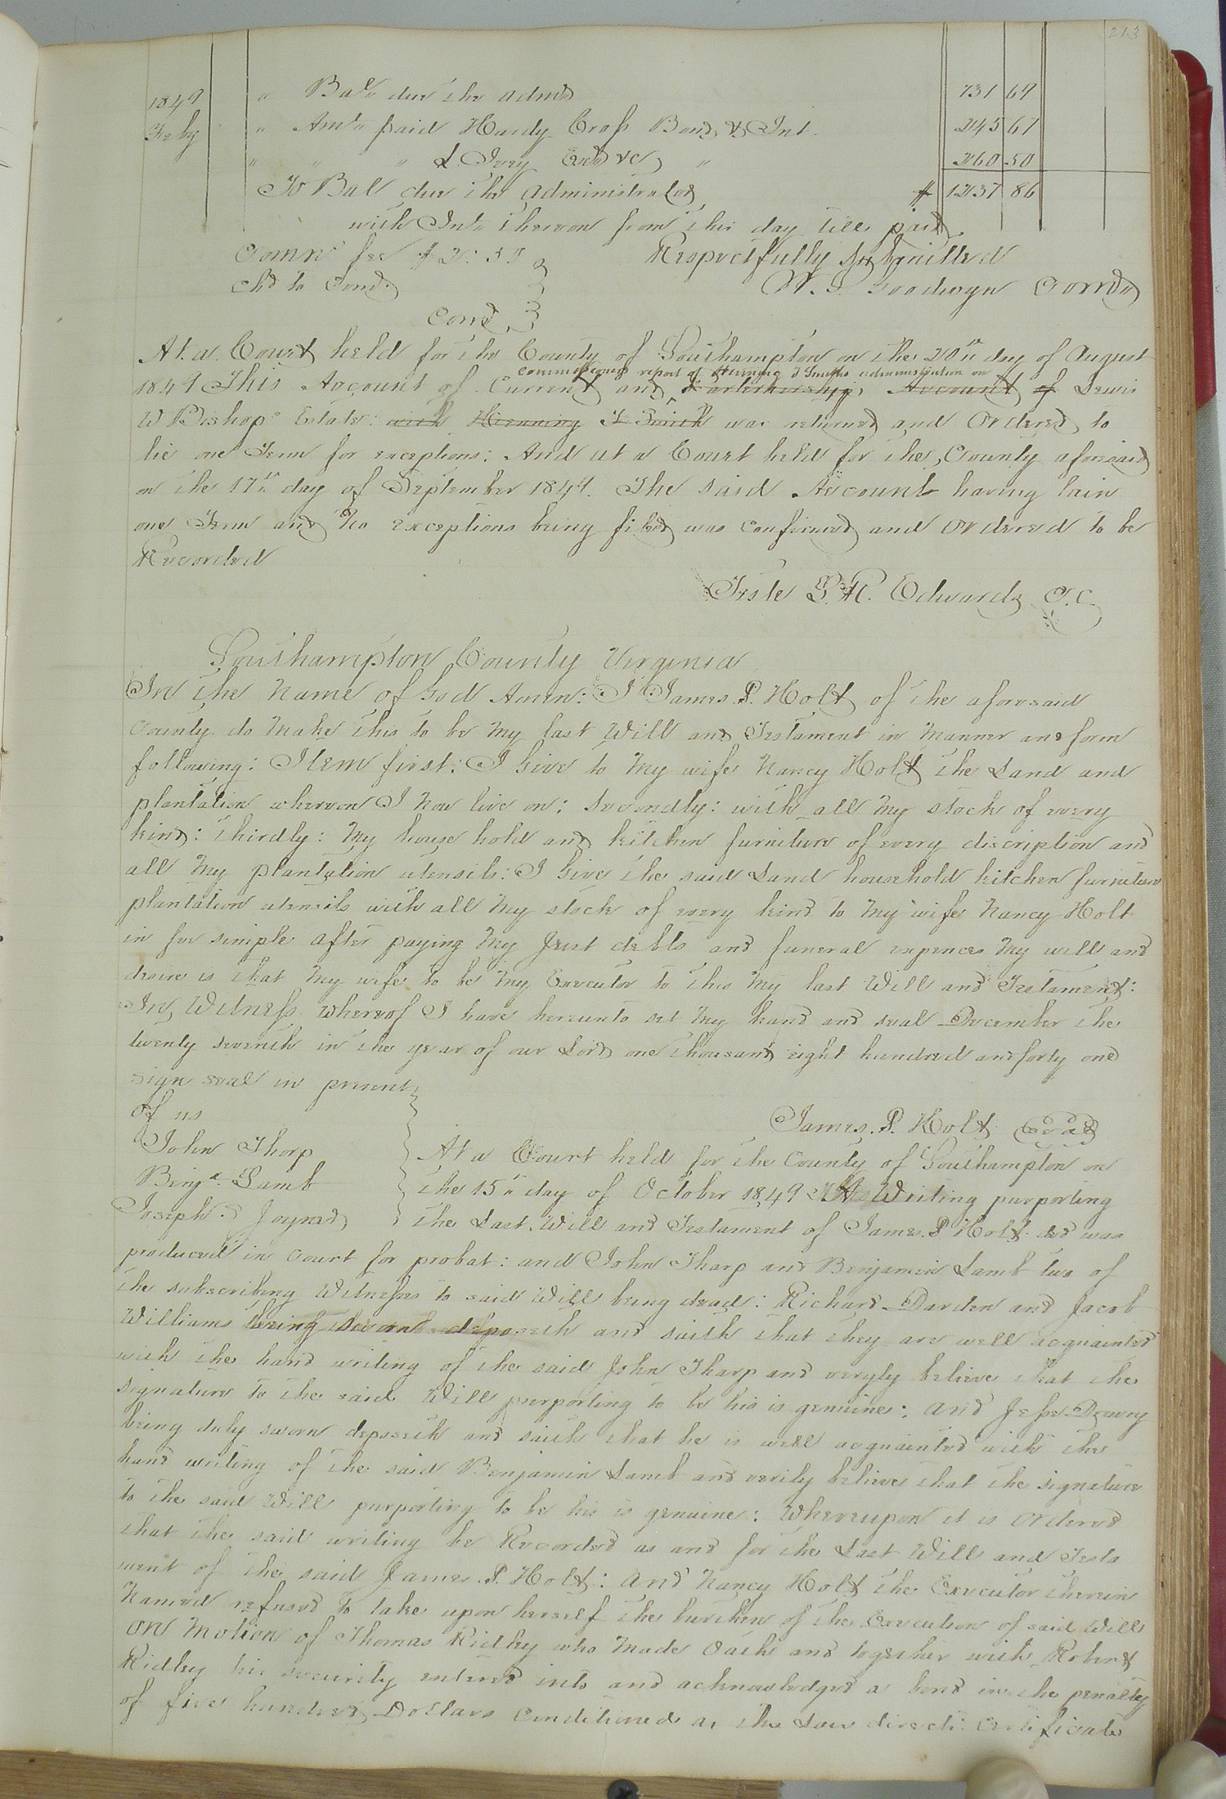 213
1849 " Bal. due the admr 731 69
Feby " Amt. paid Hardy Cross Bond & Int. 245 67
" " " L. Ivey Exr &c " 260 50
To Bal due the administrator $ 1237 86
with Int. thereon from this day till paid
Comrs fee $2:50 Respectfully submitted
chd to Comd. W. S. Goodwyn Comr
At a Court held for the County of Southampton on the 20th day of August
commissioners report of Henning T Smiths administration on
1849 This Account of Current and Partnership Account of Lewis
W Bishops Estate: with Henning T Smith was returned and Ordered to
lie one Term for exceptions: And at a Court held for the County aforesaid
on the 17th day of September 1849. The said Account having lain
one Term and no exceptions being filed was confirmed and ordered to be
Recorded
Teste L. R. Edwards C.C.
Southampton County Virginia
In the Name of God Amen: I James P. Holt of the aforesaid
County do Make this to be My last Will and Testament in Manner and form
following: Item first: I Give to My wife Nancy Holt the Land and
plantation whereon I Now live on: Secondly: with all My stock of every
kind: thirdly: My house hold and kitchen furniture of every discription and
all My plantation utensils: I Give the said Land household kitchen furniture
plantation utensils with all My stock of every kind to My wife Nancy Holt
in fee simple after paying My Just debts and funeral expences My will and
desire is that My wife to be My Executor to this My last Will and Testament:
In, Witness whereof I have hereunto set My hand and seal December the
twenty seventh in the year of our Lord one thousand eight hundred and forty one
sign seal in present
of us
James. P. Holt Seal
John Thorp
Benja. Lamb
Joseph: Joyner
At a Court held for the County of Southampton on
the 15th day of October 1849 A Writing purporting
the Last Will and Testament of James P Holt decd was
produced in Court for probat: and John Tharp and Benjamin Lamb two of
the subscribing Witnesses to said Will being dead: Richard Darden and Jacob
Williams being sworn deposeth and saith that they are well acquainted
with the hand writing of the said John Tharp and veryly believe that the
signature to the said Will purporting to be his is genuine: and Jesse Drewry
being duly sworn deposeth and saith that he is well acquainted with the
hand writing of the said Benjamin Lamb and verily believe that the signature
to the said Will purporting to be his is genuine: Whereupon it is Ordered
that the said writing be Recorded as and for the Last Will and Testa
ment of the said James. P. Holt: and Nancy Holt the Executor therein
Named refused to take upon herself the burthen of the Execution of said Will
on Motion of Thomas Ridley who Made Oath and together with Robert
Ridley his security entered into and acknowledged a bond in the penalty
of five hundred Dollars Conditioned as the Law directs Certificate